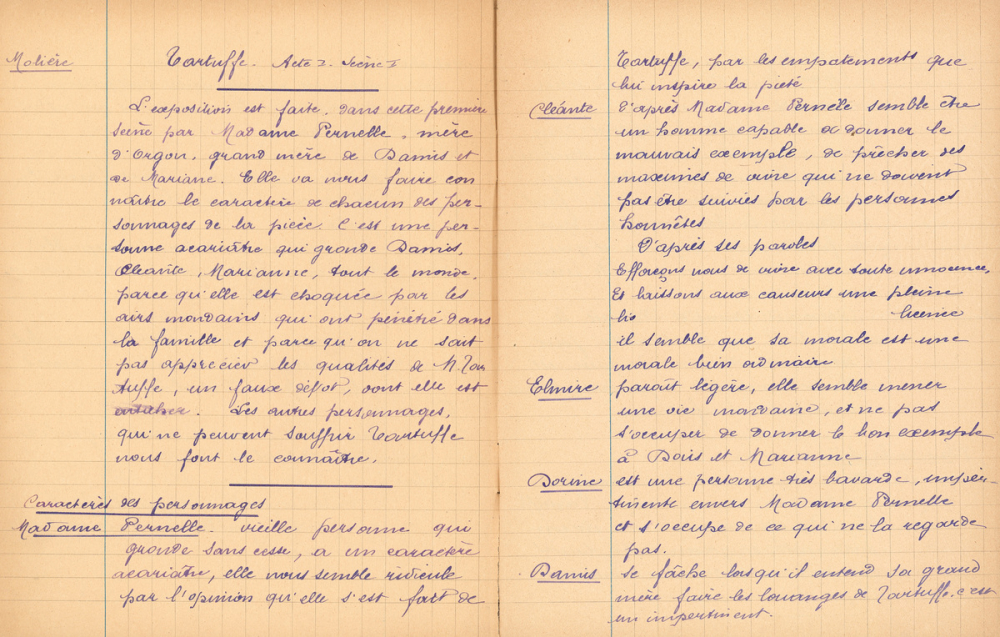 Molière
Tartuffe. Acte I. Scène I
L'exposition est faite, dans cette première
scène par Madame Pernelle, mère
d'Orgon, grand mère de Damis et
de Mariane. Elle va nous faire con
naître le caractère de chacun des per-
sonnages de la pièce. C'est une per-
sonne acariâtre qui gronde Damis,
Cléante, Marianne, tout le monde,
parce qu'elle est choquée par les
airs mondains qui ont pénétré dans
la famille et parce qu'on ne sait
pas apprécier les qualités de M. Tar
tuffe, un faux dévot, dont elle est
. Les autres personnages,
qui ne peuvent souffrir Tartuffe
nous font le connaître.
Caractères des personnages
Madame Pernelle. vieille personne qui
gronde sans cesse, a un caractère
acariâtre, elle nous semble ridicule
par l'opinion qu'elle s'est fait de
Tartuffe, par les empatements que
lui inspire la piété
Cléante
d'après Madame Pernelle semble être
un homme capable de donner le
mauvais exemple, de prêcher des
maximes de vivre qui ne doivent
pas être suivies par les personnes
honnêtes
D'après ses paroles
Efforçons nous de vivre avec toute innocence,
Et laissons aux causeurs une pleine
licence
il semble que sa morale est une
morale bien ordinaire
Elmire
paraît légère, elle semble mener
une vie mondaine, et ne pas
s'occuper de donner le bon exemple
à Doris et Marianne
Dorine
est une personne très bavarde, imper-
tinente envers Madame Pernelle
et s'occupe de ce qui ne la regarde
pas.
Damis
se fâche lorsqu'il entend sa grand
mère faire les louanges de Tartuffe. c'est
un impertinent.